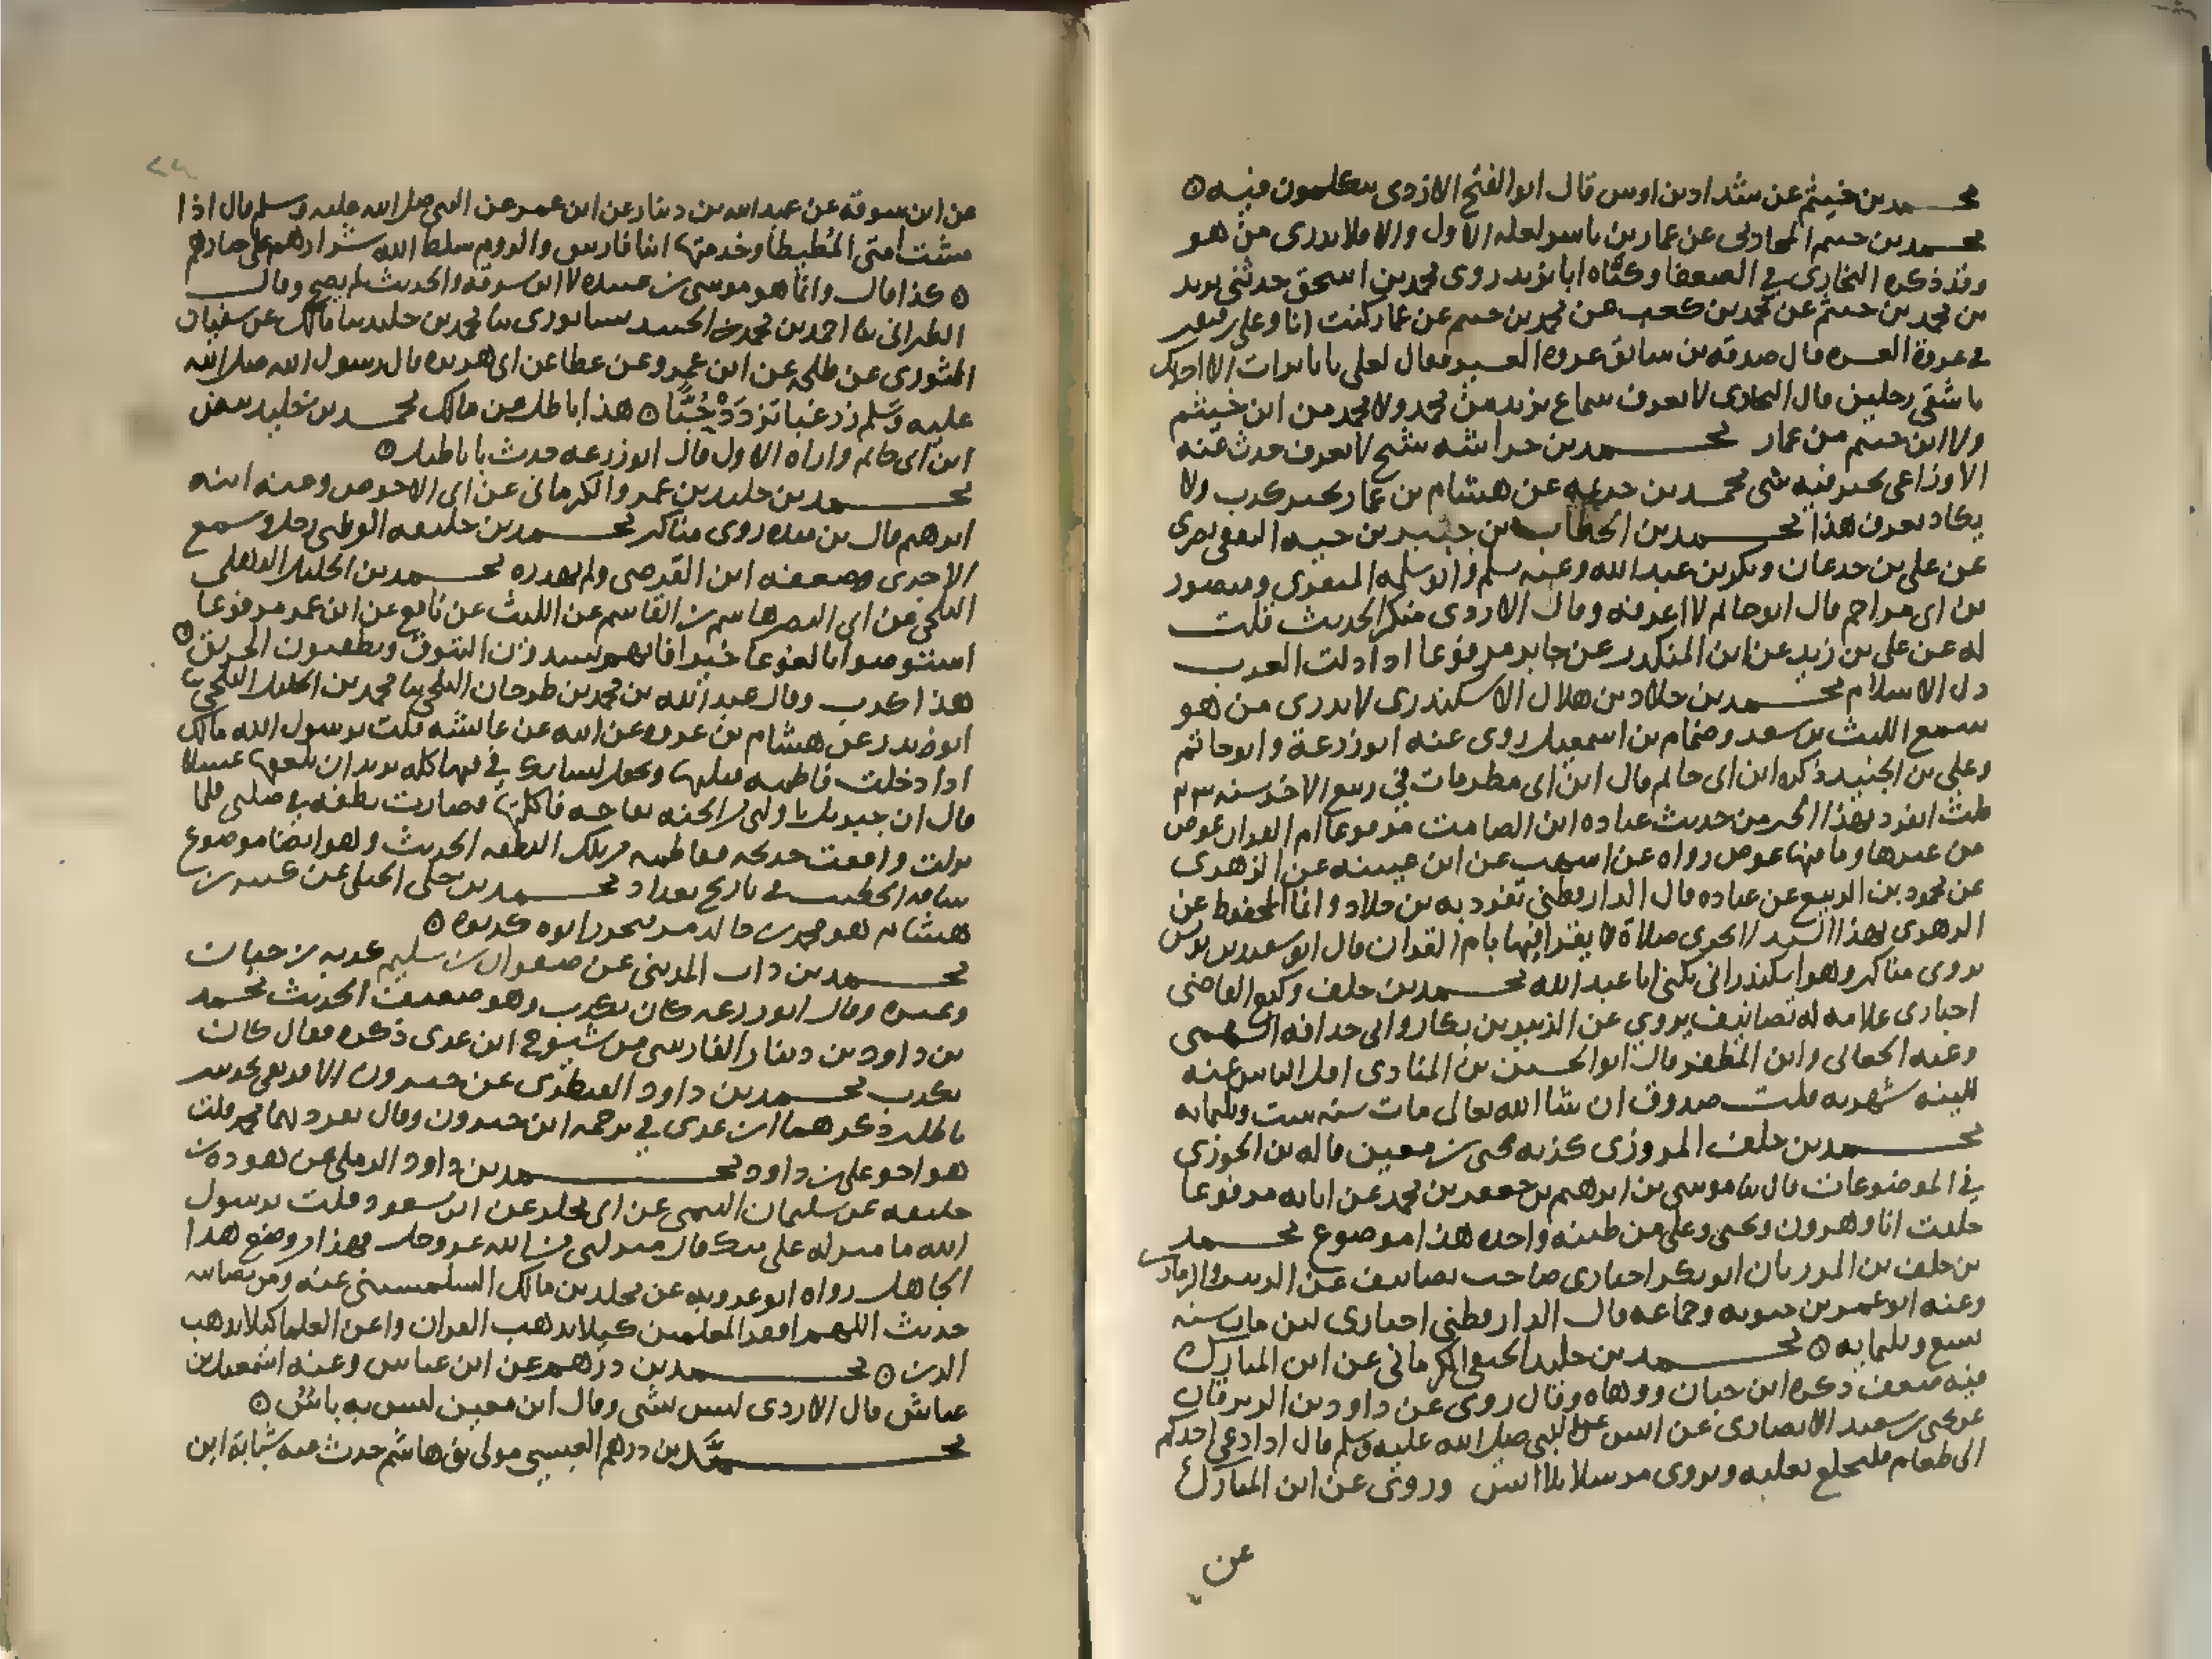 محمد بن خيثم عن شداد بن اوس قال ابو الفتح الازدي يتكلمون فيه
محمد بن خيثم المحاربي عن عمار بن ياسر لعله الاول والا فلا يدرى من هو
وقد ذكره البخاري في الضعفا وكناه ابا يزيد روى محمد بن اسحق حدثني يزيد
بن محمد بن خيثم عن محمد بن كعب عن محمد بن خيثم عن عمار كنت انا وعلي رفيقين
في غزوة العسره قال صدقه بن سابق غزوه العسير فقال لعلي يا ابا تراب الا احدثك
باشقى رجلين قال البخاري لا يعرف سماع يزيد من محمد ولا محمد من ابن خيثم
ولا ابن خيثم من عمار محمد بن خراشه شيخ لا يعرف حدث عنه
الاوزاعي بخبر فيه شي محمد بن خزيمه عن هشام بن عمار بخبر كذب ولا
يكاد يعرف هذا محمد بن الخطاب بن جبير بن حيه الثقفي بصري
عن علي بن جدعان وبكر بن عبد الله وعنه مسلم وابو سلمه المنقري ومنصور
بن ابي مزاحم قال ابو حاتم لا اعرفه وقال الازدي منكر الحديث قلت
له عن علي بن زيد عن ابن المنكدر عن جابر مرفوعا اذا ذلت العرب
ذل الاسلام محمد بن خلاد بن هلال الاسكندري لا يدرى من هو
سمع الليث بن سعد وضمام بن اسمعيل روى عنه ابو زرعة وابو حاتم
وعلي بن الجنيد ذكره ابن ابي حاتم قال ابن ابي مطر مات في ربيع الاخر سنه ٢٣١
قلت انفرد بهذا الخبر من حديث عباده ابن الصامت مرفوعا ام القران عوض
من غيرها وما منها عوض رواه عن اشهب عن ابن عيينه عن الزهري
عن محمود بن الربيع عن عباده قال الدارقطني تفرد به بن خلاد وانما المحفوظ عن
الزهري بهذا السند لا تجزي صلاة لا يقرا فيها بام القران قال ابو سعيد بن يونس
يروي مناكير وهو اسكندراني يكنى ابا عبد الله محمد بن خلف وكيع القاضي
اخباري علامه له تصانيف يروي عن الزبير بن بكار وابي حذافه السهمي
وعنه الجعابي وابن المظفر قال ابو الحسين بن المنادي اقل الناس عنه
للينه شهر به قلت صدوق ان شا الله تعالى مات سنه ست وثلثمايه
محمد بن خلف المروزي كذبه يحيى بن معين قاله بن الجوزي
في الموضوعات قال ثنا موسى بن ابرهيم بن جعفر بن محمد عن ابايه مرفوعا
خلقت انا وهرون ويحيى وعلي من طينه واحده هذا موضوع محمد
بن خلف بن المرزبان ابو بكر اخباري صاحب تصانيف عن الزبير والرمادي
وعنه ابو عمر بن حيويه وجماعه قال الدارقطني اخباري لين مات سنه
تسع وثلثمايه محمد بن خليد الحنفي الكرماني عن ابن المبارك
فيه ضعف ذكره ابن حبان ووهاه وقال روى عن داود بن الزبرقان
عن يحيى بن سعيد الانصاري عن انس عن النبي صلى الله عليه وسلم قال اذا دعي احدكم
الى طعام فليخلع نعليه ويروى مرسلا بلا انس وروى عن ابن المبارك
عن
٢٨
عن ابن سوقة عن عبد الله بن دينار عن ابن عمر عن النبي صلى الله عليه وسلم قال اذا
مشت امتي المطيطا وخدمتها ابنا فارس والروم سلط الله شرارهم على خيارهم
كذا قال وانما هو موسى بن عبيده لا ابن سوقه والحديث لم يصح وقال
الطبراني ثنا احمد بن محمد بن الجنيد ثنا محمد بن خليد ثنا مالك عن سفيان
الثوري عن طلحه عن ابن عمرو عن عطا عن ابي هريره قال رسول الله صلى الله
عليه وسلم زر غبا تزدد حبا هذا باطل عن مالك محمد بن خليد
ابن ابي حاتم واراه الاول قال ابو زرعه حدث باباطيل
محمد بن خليد بن عمرو الكرماني عن ابي الاحوص وعنه ابنه
ابرهيم قال بن منده روى مناكير محمد بن خليفه القرطبي رحل وسمع
الاجري وضعفه ابن الفرضي ولم يهدره محمد بن الخليل الذهلي
البلخي عن ابي النضر هاشم بن القاسم عن الليث عن نافع عن ابن عمر مرفوعا
استوصوا بالغوغا خيرا فانهم يسدون البثوق ويطفئون الحريق
هذا كذب وقال عبد الله بن محمد بن طرخان البلخي ثنا محمد بن الخليل البلخي ثنا
ابو بدر عن هشام بن عروه عن ابيه عن عايشه قلت يرسول الله مالك
اذا دخلت فاطمه قبلتها وتجعل لسانك في فيها كله تريد ان تلعقها عسلا
قال ان جبريل ناولني في الجنه تفاحه فاكلتها فصارت نطفه في صلبي فلما
نزلت واقعت خديجه ففاطمه من تلك النطفه الحديث وهو ايضا موضوع
ساقه الخطيب في تاريخ بغداد محمد بن خلي الحبلي عن عيسى بن
هشام هو محمد بن خالد
محمد بن داب المديني عن صفوان بن سليم كذبه بن حبان
وغيره وقال ابو زرعه كان يكذب وهو ضعيف الحديث محمد
بن داود بن دينار الفارسي من شيوخ ابن عدي ذكره فقال كان
يكذب محمد بن داود القنطري عن جبرون الافريقي بحديث
باطل ذكرهما ابن عدي في ترجمه ابن جبرون وقال تفرد بهما محمد قلت
هو اخو علي بن داود محمد بن داود الرملي عن هوذه بن
خليفه عن سليمان التيمي عن ابي مجلز عن ابن مسعود قلت يرسول
الله ما منزله علي منك قال منزلتي من الله عز وجل فهذا وضع هذا
الجاهل رواه ابو عروبه عن مخلد بن مالك السلمسيني عنه ومن بلاياه
حديث اللهم افقر المعلمين كيلا يذهب القران واغن العلما كيلا يذهب
الدين محمد بن درهم عن ابن عباس وعنه اسمعيل بن
عياش قال الازدي ليس بشي وقال ابن معين ليس به باس
محمد بن درهم العبسي مولى بني هاشم حدث عنه شبابة ابن